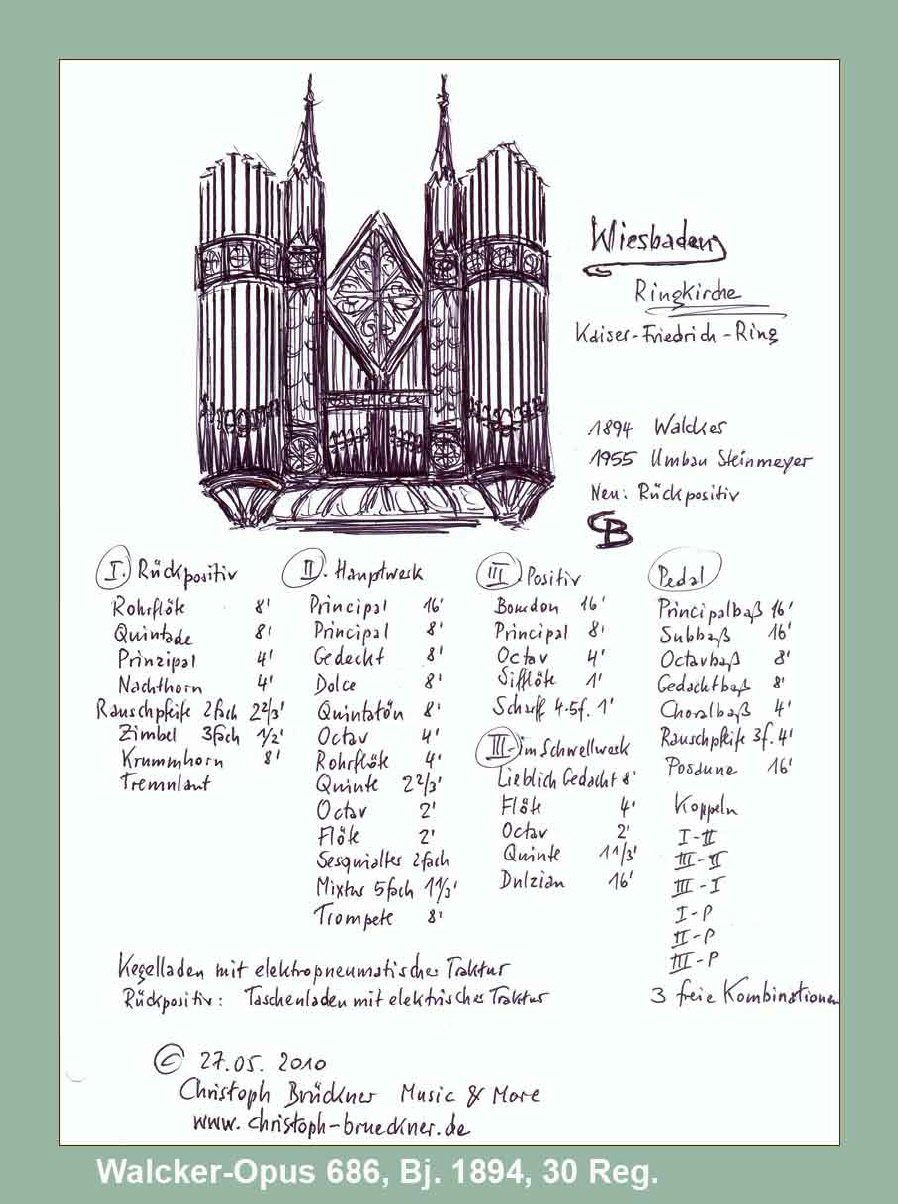 Wiesbaden
Ringkirche
Kaiser-Friedrich-Ring
1894 Walcker
1955 Umbau Steinmeyer
Neu: Rückpositiv
CB
I. Rückpositiv
Rohrflöte 8'
Quintade 8'
Prinzipal 4'
Nachthorn 4'
Rauschpfeife 2fach 2 2/3'
Zimbel 3fach 1/2'
Krummhorn 8'
Tremulant
II. Hauptwerk
Principal 16'
Principal 8'
Gedeckt 8'
Dolce 8'
Quintatön 8'
Octav 4'
Rohrflöte 4'
Quinte 2 2/3'
Octav 2'
Flöte 2'
Sesquialter 2fach
Mixtur 5fach 1 1/3'
Trompete 8'
III Positiv
Bourdon 16'
Principal 8'
Octav 4'
Sifflöte 1'
Scharff 4-5f. 1'
III- im Schwellwerk
Lieblich Gedacht 8'
Flöte 4'
Octav 2'
Quinte 1 1/3'
Dulzian 16'
Pedal
Principalbaß 16'
Subbaß 16'
Octavbaß 8'
Gedacktbaß 8'
Choralbaß 4'
Rauschpfeife 3f. 4'
Posaune 16'
Koppeln
I-II
III-II
III-I
I-P
II-P
III-P
3 freie Kombinationen
Kegelladen mit elektropneumatischer Traktur
Rückpositiv: Taschenladen mit elektrischer Traktur
© 27.05. 2010
Christoph Brückner Music & More
www.christoph-brueckner.de
Walcker-Opus 686, Bj. 1894, 30 Reg.